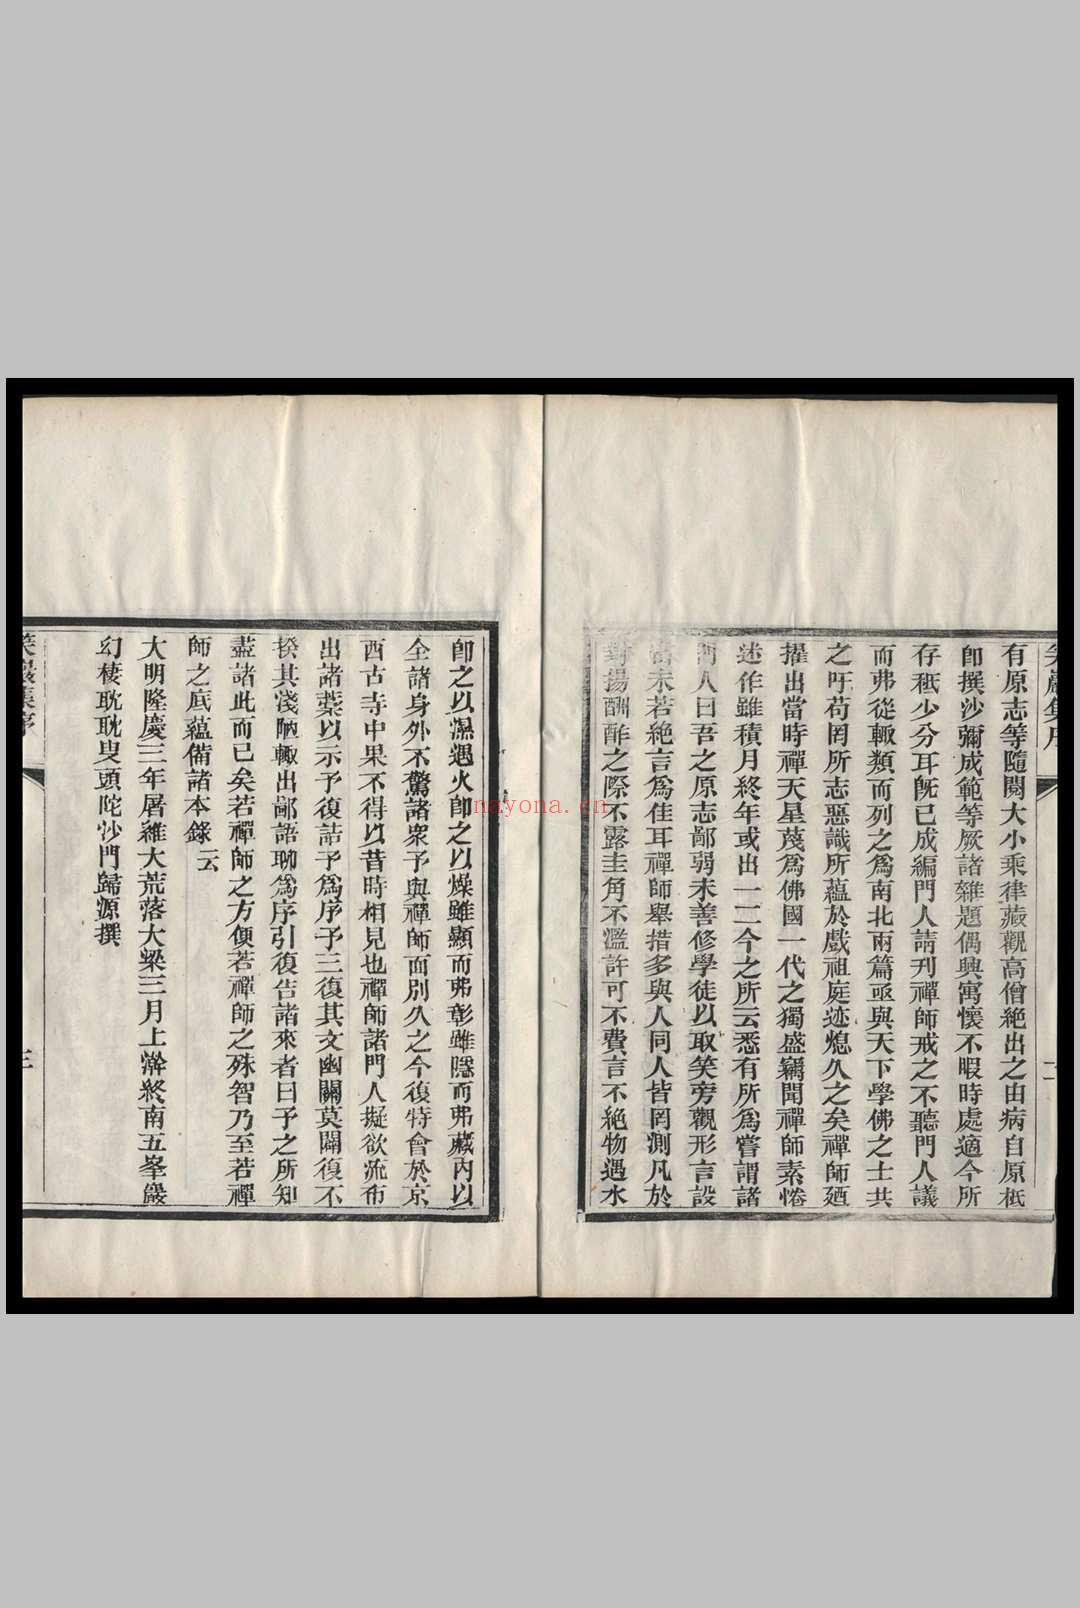 笑巖集序
二
有原志等隨閱大小乘律藏觀高僧絶出之由病自原柢
卽撰沙彌成範等厥諸雜題偶興寓懷不暇時處適今所
存秪少分耳旣已成編門人請刊禪師戒之不聽門人議
而弗從輙類而列之爲南北兩篇亟與天下學佛之士共
之吁苟罔所志惡識所蘊於戲祖庭迹熄久之矣禪師廼
擢出當時禪天星茂爲佛國一代之獨盛竊聞禪師素惓
述作雖積月終年或出一二今之所云悉有所爲嘗謂諸
門人曰吾之原志鄙弱未善修學徒以取笑旁觀形言設
當未若絶言爲佳耳禪師舉措多與人同人皆罔測凡於
對揚酬酢之際不露圭角不濫許可不費言不絶物遇水
卽之以濕遇火卽之以燥雖顯而弗彰雖隱而弗藏內以
全諸身外不驚諸衆予與禪師面別久之今復特會於京
西古寺中果不得以昔時相見也禪師諸門人擬欲流布
出諸藁以示予復詰予爲序予三復其文幽關莫闢復不
揆其淺陋輙出鄙語聊爲序引復告諸來者曰予之所知
盡諸此而已矣若禪師之方便若禪師之殊智乃至若禪
師之底蘊備諸本錄云
大明隆慶三年屠維大荒落大梁三月上澣終南五峯巖
幻棲耽耽叟頭陀沙門歸源撰
笑巖集序
三
nayona.cn